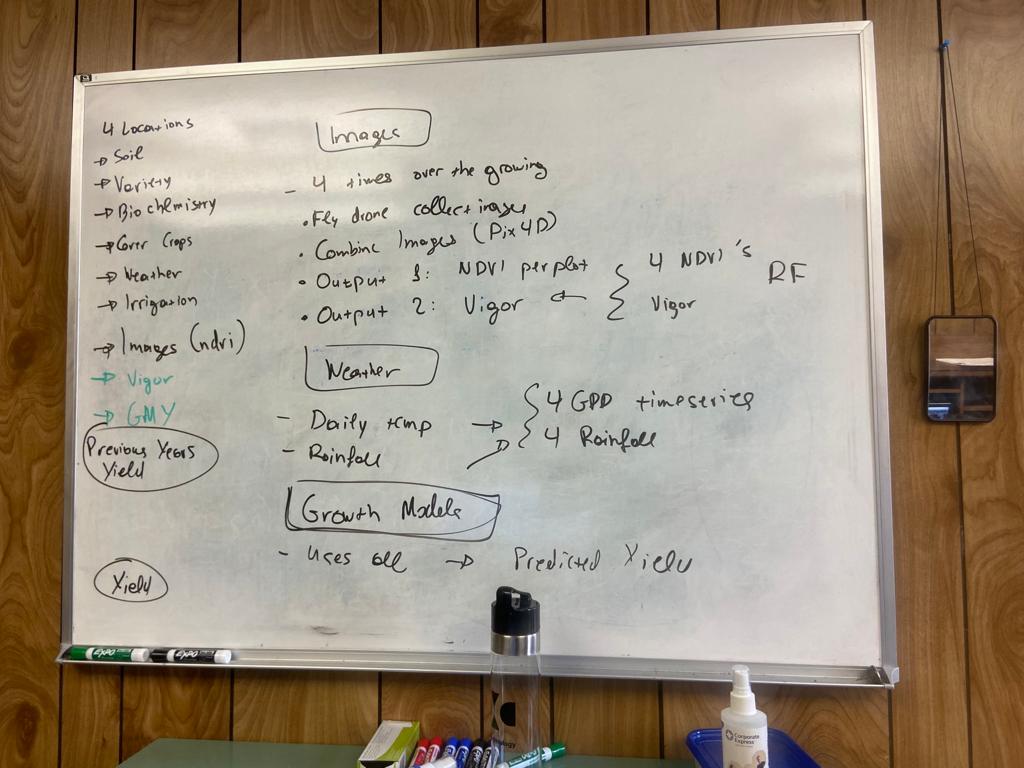 4 Locations
→ Soil
→ Variety
→ Biochemistry
→ Cover Crops
→ Weather
→ Irrigation
→ Images (ndvi)
→ Vigor
→ GMY
Previous Years
Yield
Yield
Images
- 4 times over the growing
• Fly drone collect images
• Combine Images (Pix4D)
• Output 1: NDVI per plot
• Output 2: Vigor ←
{ 4 NDVI's
Vigor
RF
Weather
- Daily temp →
- Rainfall
{ 4 GDD timeseries
4 Rainfall
Growth Models
- Uses all → Predicted Yield
expo
expo
Corporate
Express